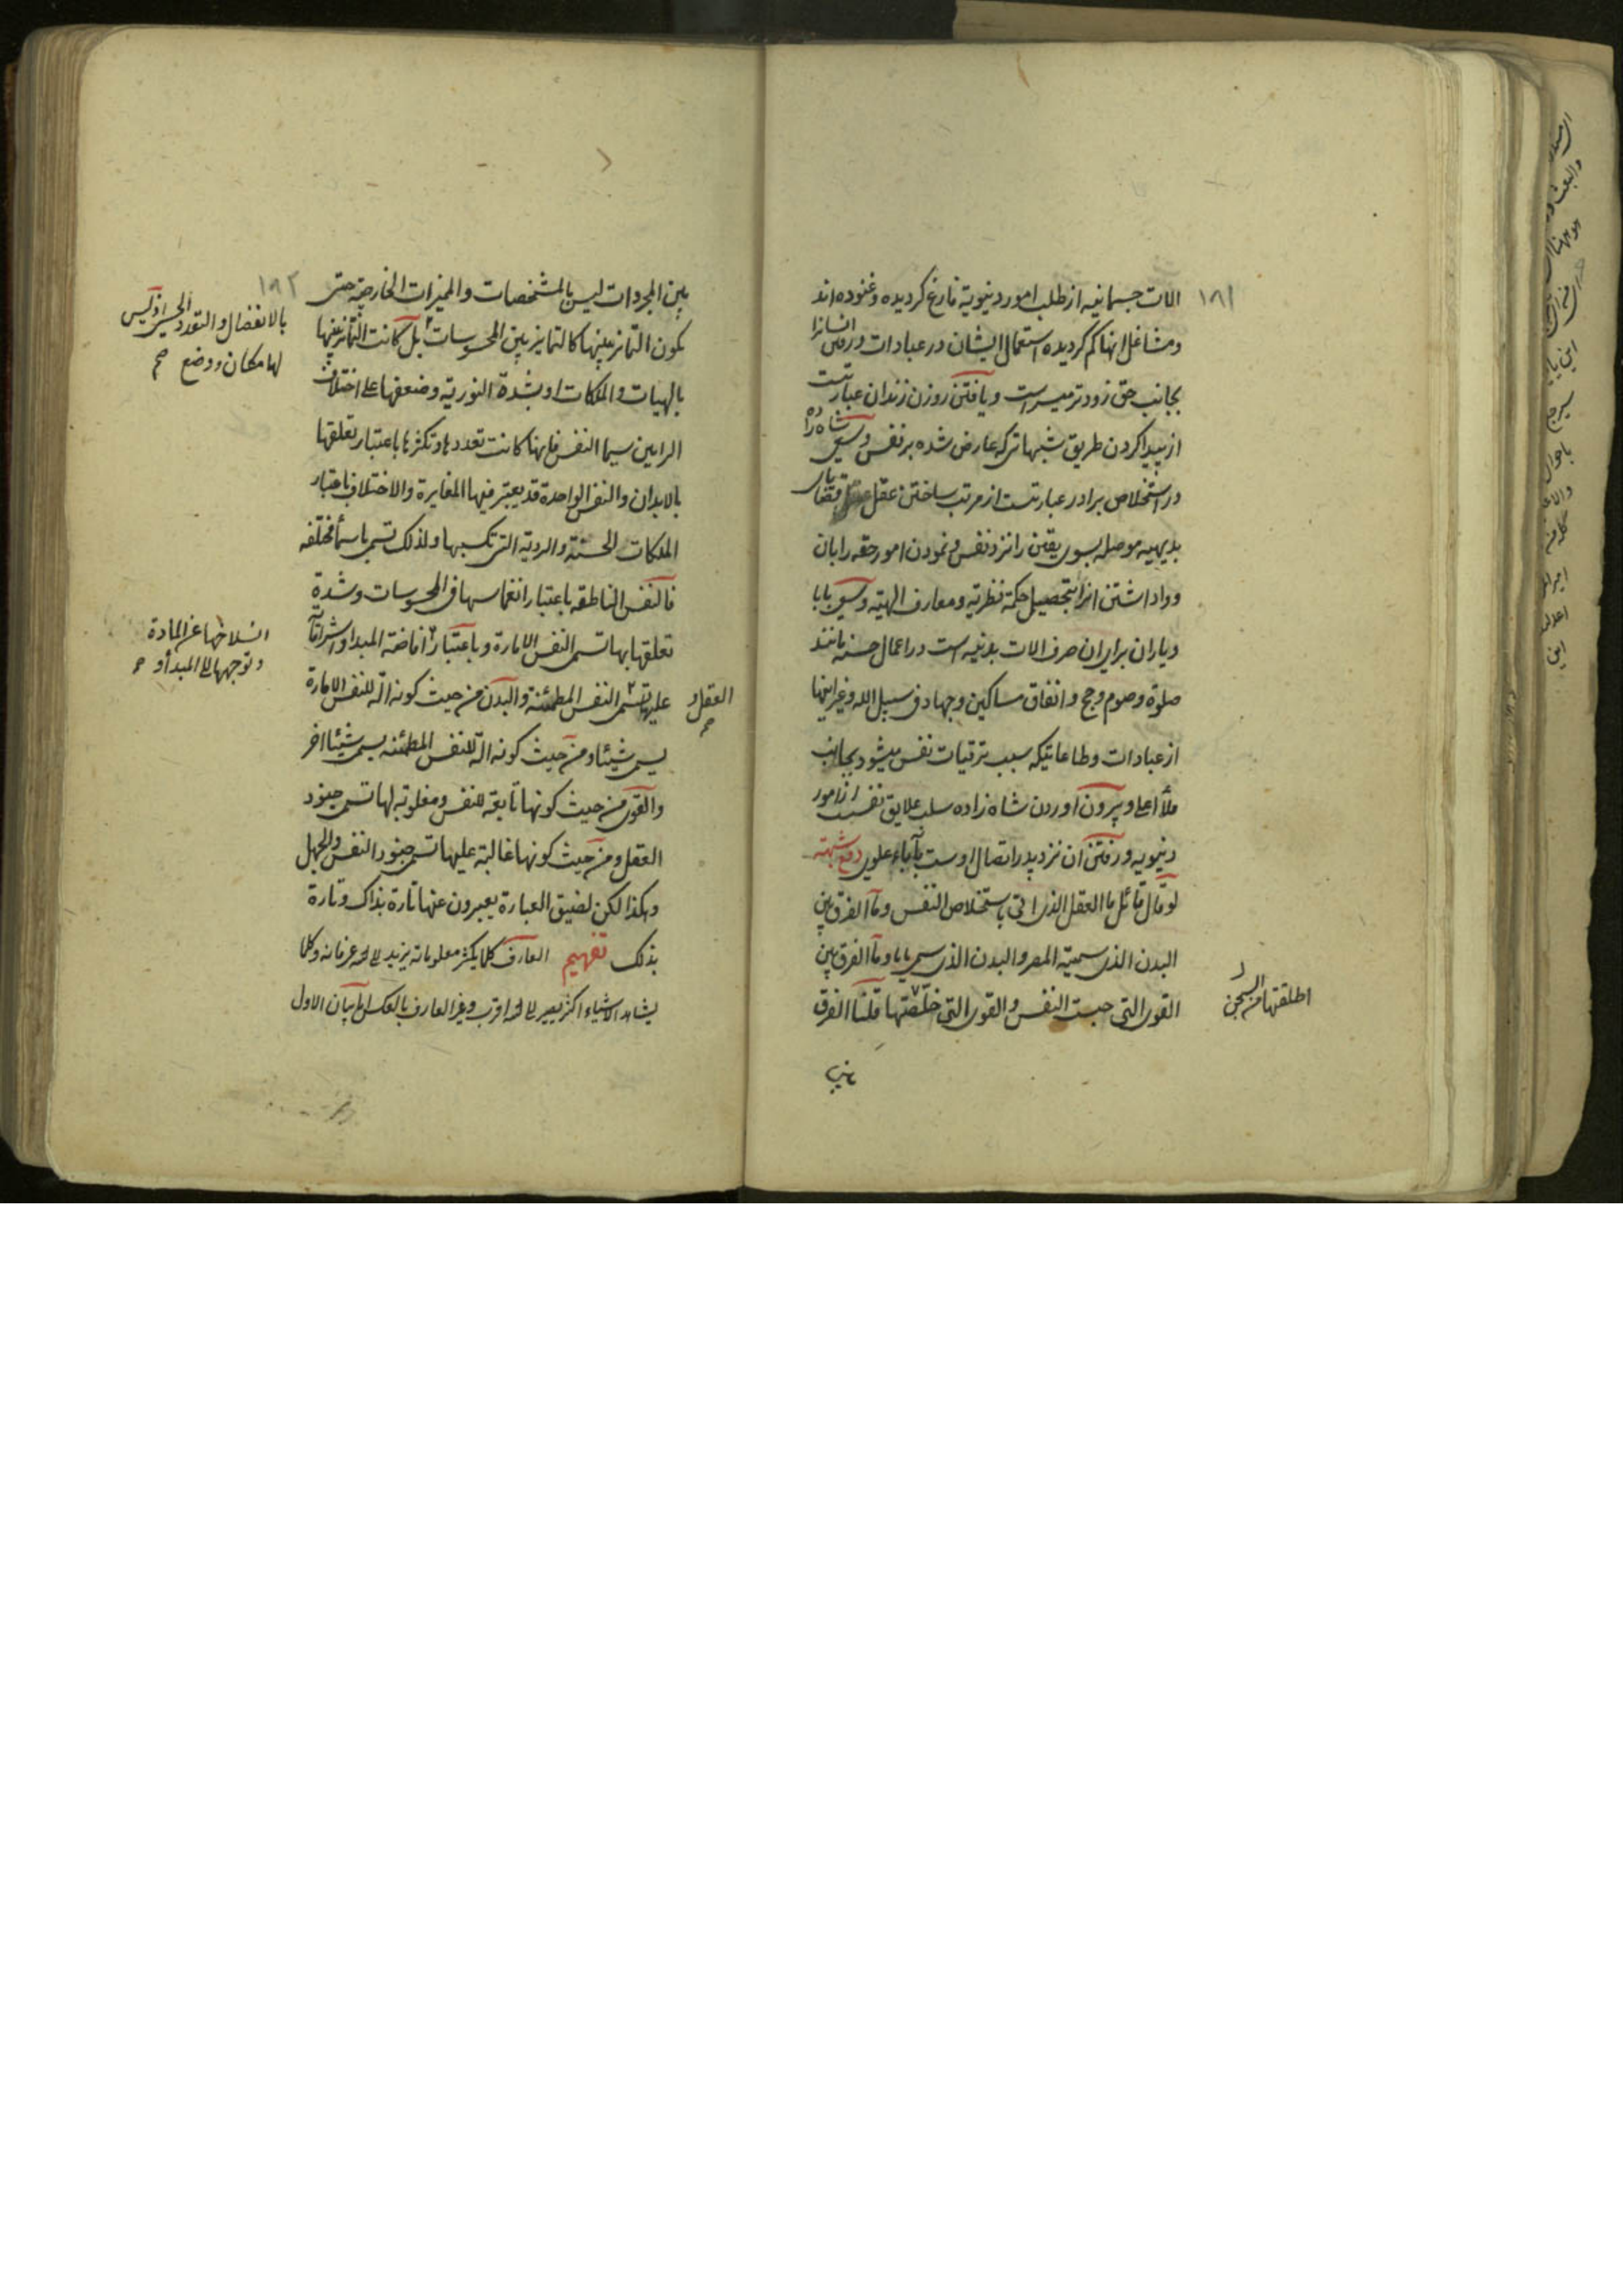 ١٨١
الات جسمانیه از طلب امور دنیویة فارغ کردیده و غنوده‌اند
و مشاغل انها کم کردیده استعمال ایشان در عبادات و رفتن انسانرا
بجانب حق زودتر میسر است و یافتن روزن زندان عبارتست
از پیدا کردن طریق شبهاتی که عارض شده بر نفس و سعی شاه زاده
در استخلاص برادر عبارتست از مرتب ساختن عقل قضایای
بدیهیه موصله بسوی یقین را نزد نفس و نمودن امور حقه را بان
و واداشتن انرا بتحصیل حکمة نظریه و معارف الهیه و سعی بابا
و یاران برای ان صرف الات بدنیه است در اعمال حسنه مانند
صلوة و صوم و حج و انفاق مساکین و جهاد فی سبیل الله و غیر اینها
از عبادات و طاعاتیکه سبب ترقیات نفس میشود بجانب
ملأ اعلی و بیرون اوردن شاه زاده سلب علایق نفس از امور
دنیویه و رفتن ان نزد پدر اتصال اوست بآباء علوی دفع شبهة
لو قال قائل ما العقل الذی اتی باستخلاص النفس و ما الفرق بین
البدن الذی سمیته المصر و البدن الذی سمی بابا و ما الفرق بین
القوی التی حبست النفس و القوی التی خلّصتها قلنا الفرق
اطلقتها من السجن
بین
١٨٢
بین المجردات لیس بالمشخصات و الممیزات الخارجیة حتی
یکون التمایز بینها کالتمایز بین المحسوسات بل کانت التمایز بینها
بالانفضال و التعدد الحسی اذ لیس
لها مکان و وضع صح
بالهیات و الملکات او بشدة النوریة و ضعفها علی اختلاف
الرایین سیما النفس فانها کانت تعددها و تکثرها باعتبار تعلقها
بالابدان و النفس الواحدة قد یعتبر فیها المغایرة و الاختلاف باعتبار
الملکات الحسنة و الردیة التی تکسبها و لذلک تسمی باسمأ مختلفه
فالنفس الناطقه باعتبار انغماسها فی المحسوسات و شدة
تعلقها بها تسمی النفس الامارة و باعتبار افاضة المبدا و اشراقاته
انسلاخها عن المادة
و توجهها الی المبدأ و
علیها تسمی النفس المطمئنة و البدن من حیث کونه الة للنفس الامارة
العقل و
صح
یسمی شیئا و من حیث کونه الة للنفس المطمئنه یسمی شیئا اخر
و القوی من حیث کونها تابعة للنفس و مغلوبة لها تسمی جنود
العقل و من حیث کونها غالبة علیها تسمی جنود النفس و الجهل
و هکذا لکن لضیق العبارة یعبرون عنها تارة بذاک و تارة
بذلک تفهیم العارف کلما یکثر معلوماته یزید الی الله عرفانه و کلما
یشاهد الاشیاء اکثر یصیر الی الله اقرب و غیر العارف بالعکس اما بیان الاول